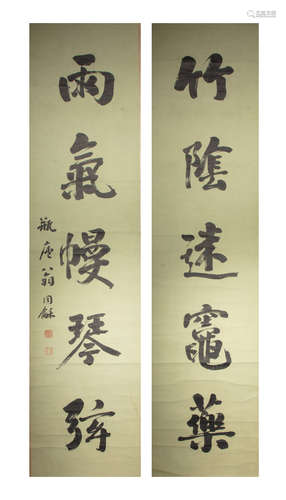 竹陰竈藥
雨氣幔琴弦
瓶廬翁同龢